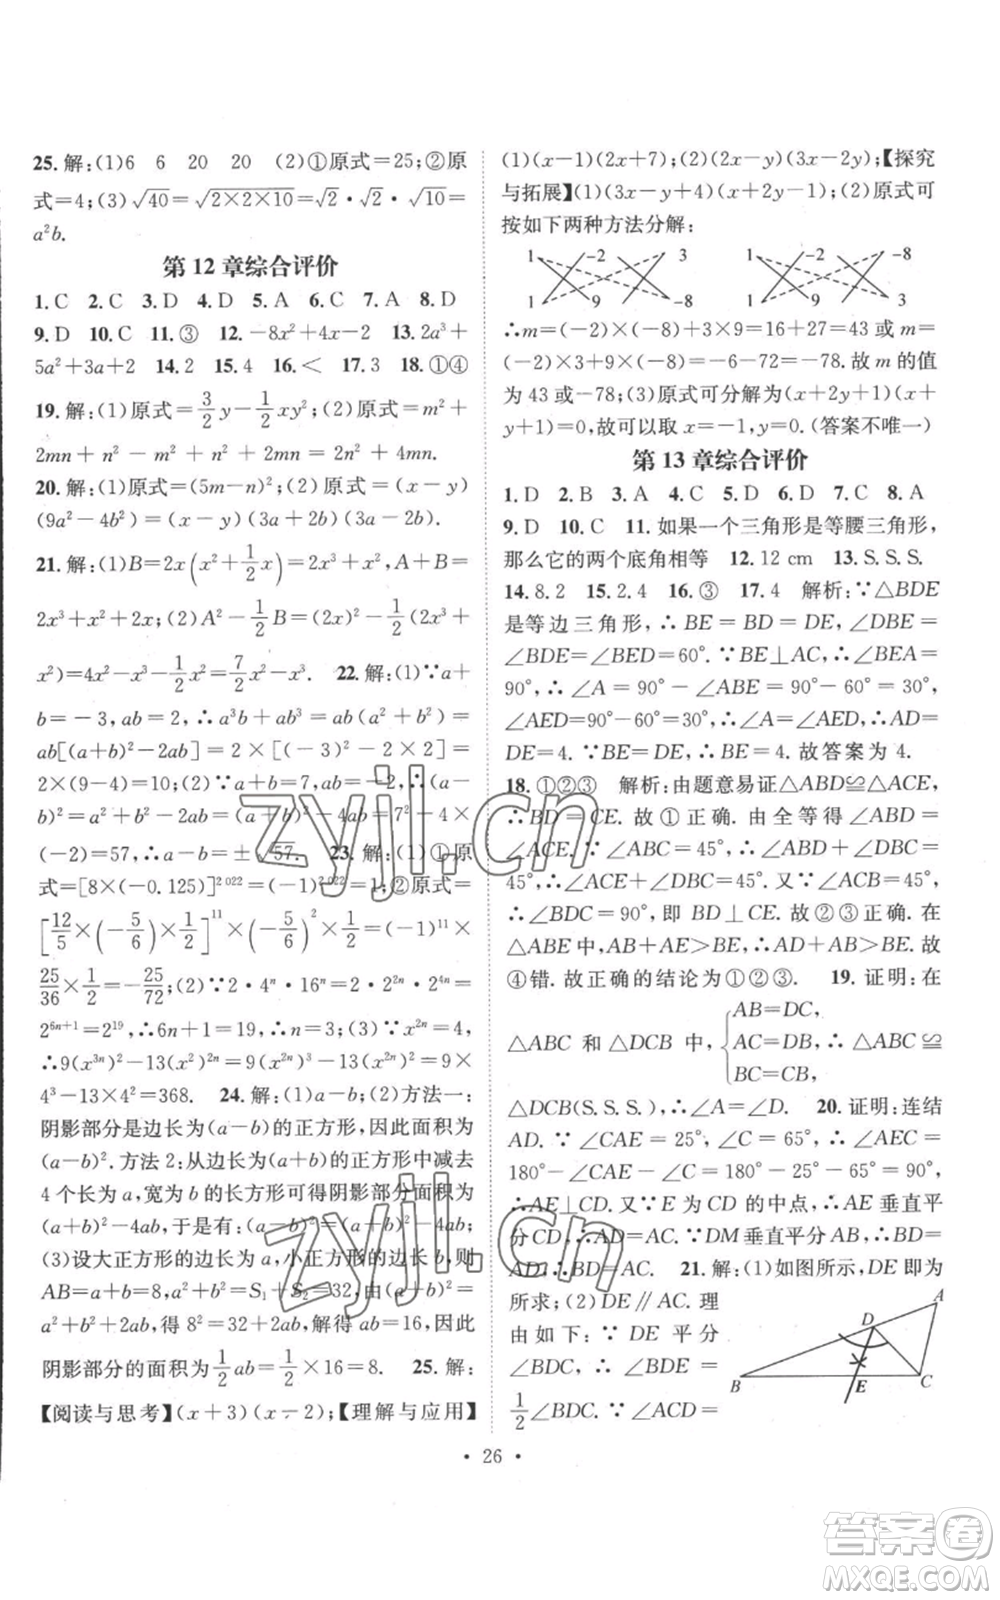 25. 解:(1)6 6 20 20 (2)①原式=25;②原
式=4;(3)√40=√(2×2×10)=√2·√2·√10=
a²b.
第 12 章综合评价
1. C 2. C 3. D 4. D 5. A 6. C 7. A 8. D
9. D 10. C 11. ③ 12. -8x²+4x-2 13. 2a³+
5a²+3a+2 14. 2 15. 4 16. < 17. 3 18. ①④
19. 解:(1)原式=3/2y-1/2xy²;(2)原式=m²+
2mn+n²-m²+n²+2mn=2n²+4mn.
20. 解:(1)原式=(5m-n)²;(2)原式=(x-y)
(9a²-4b²)=(x-y)(3a+2b)(3a-2b).
21. 解:(1)B=2x(x²+1/2x)=2x³+x²,A+B=
2x³+x²+2x;(2)A²-1/2B=(2x)²-1/2(2x³+
x²)=4x²-x³-1/2x²=7/2x²-x³. 22. 解:(1)∵a+
b=-3,ab=2,∴a³b+ab³=ab(a²+b²)=
ab[(a+b)²-2ab]=2×[(-3)²-2×2]=
2×(9-4)=10;(2)∵a+b=7,ab=-2,∴(a-
b)²=a²+b²-2ab=(a+b)²-4ab=7²-4×
(-2)=57,∴a-b=±√57. 23. 解:(1)①原
式=[8×(-0.125)]²⁰²²=(-1)²⁰²²=1;②原式=
[12/5×(-5/6)×1/2]¹¹×(-5/6)²×1/2=(-1)¹¹×
25/36×1/2=-25/72;(2)∵2·4ⁿ·16ⁿ=2·2²ⁿ·2⁴ⁿ=
2⁶ⁿ⁺¹=2¹⁹,∴6n+1=19,∴n=3;(3)∵x²ⁿ=4,
∴9(x³ⁿ)²-13(x²)²ⁿ=9(x²ⁿ)³-13(x²ⁿ)²=9×
4³-13×4²=368. 24. 解:(1)a-b;(2)方法一:
阴影部分是边长为(a-b)的正方形,因此面积为
(a-b)². 方法 2:从边长为(a+b)的正方形中减去
4 个长为 a,宽为 b 的长方形可得阴影部分面积为
(a+b)²-4ab,于是有:(a-b)²=(a+b)²-4ab;
(3)设大正方形的边长为 a,小正方形的边长为 b,则
AB=a+b=8,a²+b²=S₁+S₂=32,∵(a+b)²=
a²+b²+2ab,得 8²=32+2ab,得 ab=16,因此
阴影部分的面积为1/2ab=1/2×16=8. 25. 解:
【阅读与思考】(x+3)(x-2);【理解与应用】
(1)(x-1)(2x+7);(2)(2x-y)(3x-2y);【探究
与拓展】(1)(3x-y+4)(x+2y-1);(2)原式可
按如下两种方法分解:
1 -2 3 1 -2 -8
1 9 -8 1 9 3
∴m=(-2)×(-8)+3×9=16+27=43 或 m=
(-2)×3+9×(-8)=-6-72=-78. 故 m 的值
为 43 或-78;(3)原式可分解为(x+2y+1)(x+
y+1)=0,故可以取 x=-1,y=0.(答案不唯一)
第 13 章综合评价
1. D 2. B 3. A 4. C 5. D 6. D 7. C 8. A
9. D 10. C 11. 如果一个三角形是等腰三角形,
那么它的两个底角相等 12. 12 cm 13. S.S.S.
14. 8.2 15. 2.4 16. ③ 17. 4 解析:∵△BDE
是等边三角形,∴BE=BD=DE,∠DBE=
∠BDE=∠BED=60°. ∵BE⊥AC,∴∠BEA=
90°,∴∠A=90°-∠ABE=90°-60°=30°,
∠AED=90°-60°=30°,∴∠A=∠AED,∴AD=
DE=4. ∵BE=DE,∴BE=4. 故答案为 4.
18. ①②③ 解析:由题意易证△ABD≌△ACE,
∴BD=CE. 故①正确. 由全等得∠ABD=
∠ACE. ∵∠ABC=45°,∴∠ABD+∠DBC=
45°,∴∠ACE+∠DBC=45°. 又∵∠ACB=45°,
∴∠BDC=90°,即 BD⊥CE. 故②③正确. 在
△ABE 中,AB+AE>BE,∴AB+AD>BE. 故
④错. 故正确的结论为①②③. 19. 证明:在
△ABC 和△DCB 中,{AB=DC,
AC=DB,
BC=CB, ∴△ABC≌
△DCB(S.S.S.). ∴∠A=∠D. 20. 证明:连结
AD. ∵∠CAE=25°,∠C=65°,∴∠AEC=
180°-∠CAE-∠C=180°-25°-65°=90°,
∴AE⊥CD. 又∵E 为 CD 的中点,∴AE 垂直平
分 CD,∴AD=AC. ∵DM 垂直平分 AB,∴BD=
AD,∴BD=AC. 21. 解:(1)如图所示,DE 即为
所求;(2)DE∥AC. 理
由如下:∵DE 平分
∠BDC,∴∠BDE=
1/2∠BDC. ∵∠ACD=
A
D
B E C
· 26 ·
zyjl.cn
zyjl.cn
答案圈
MXQE.COM